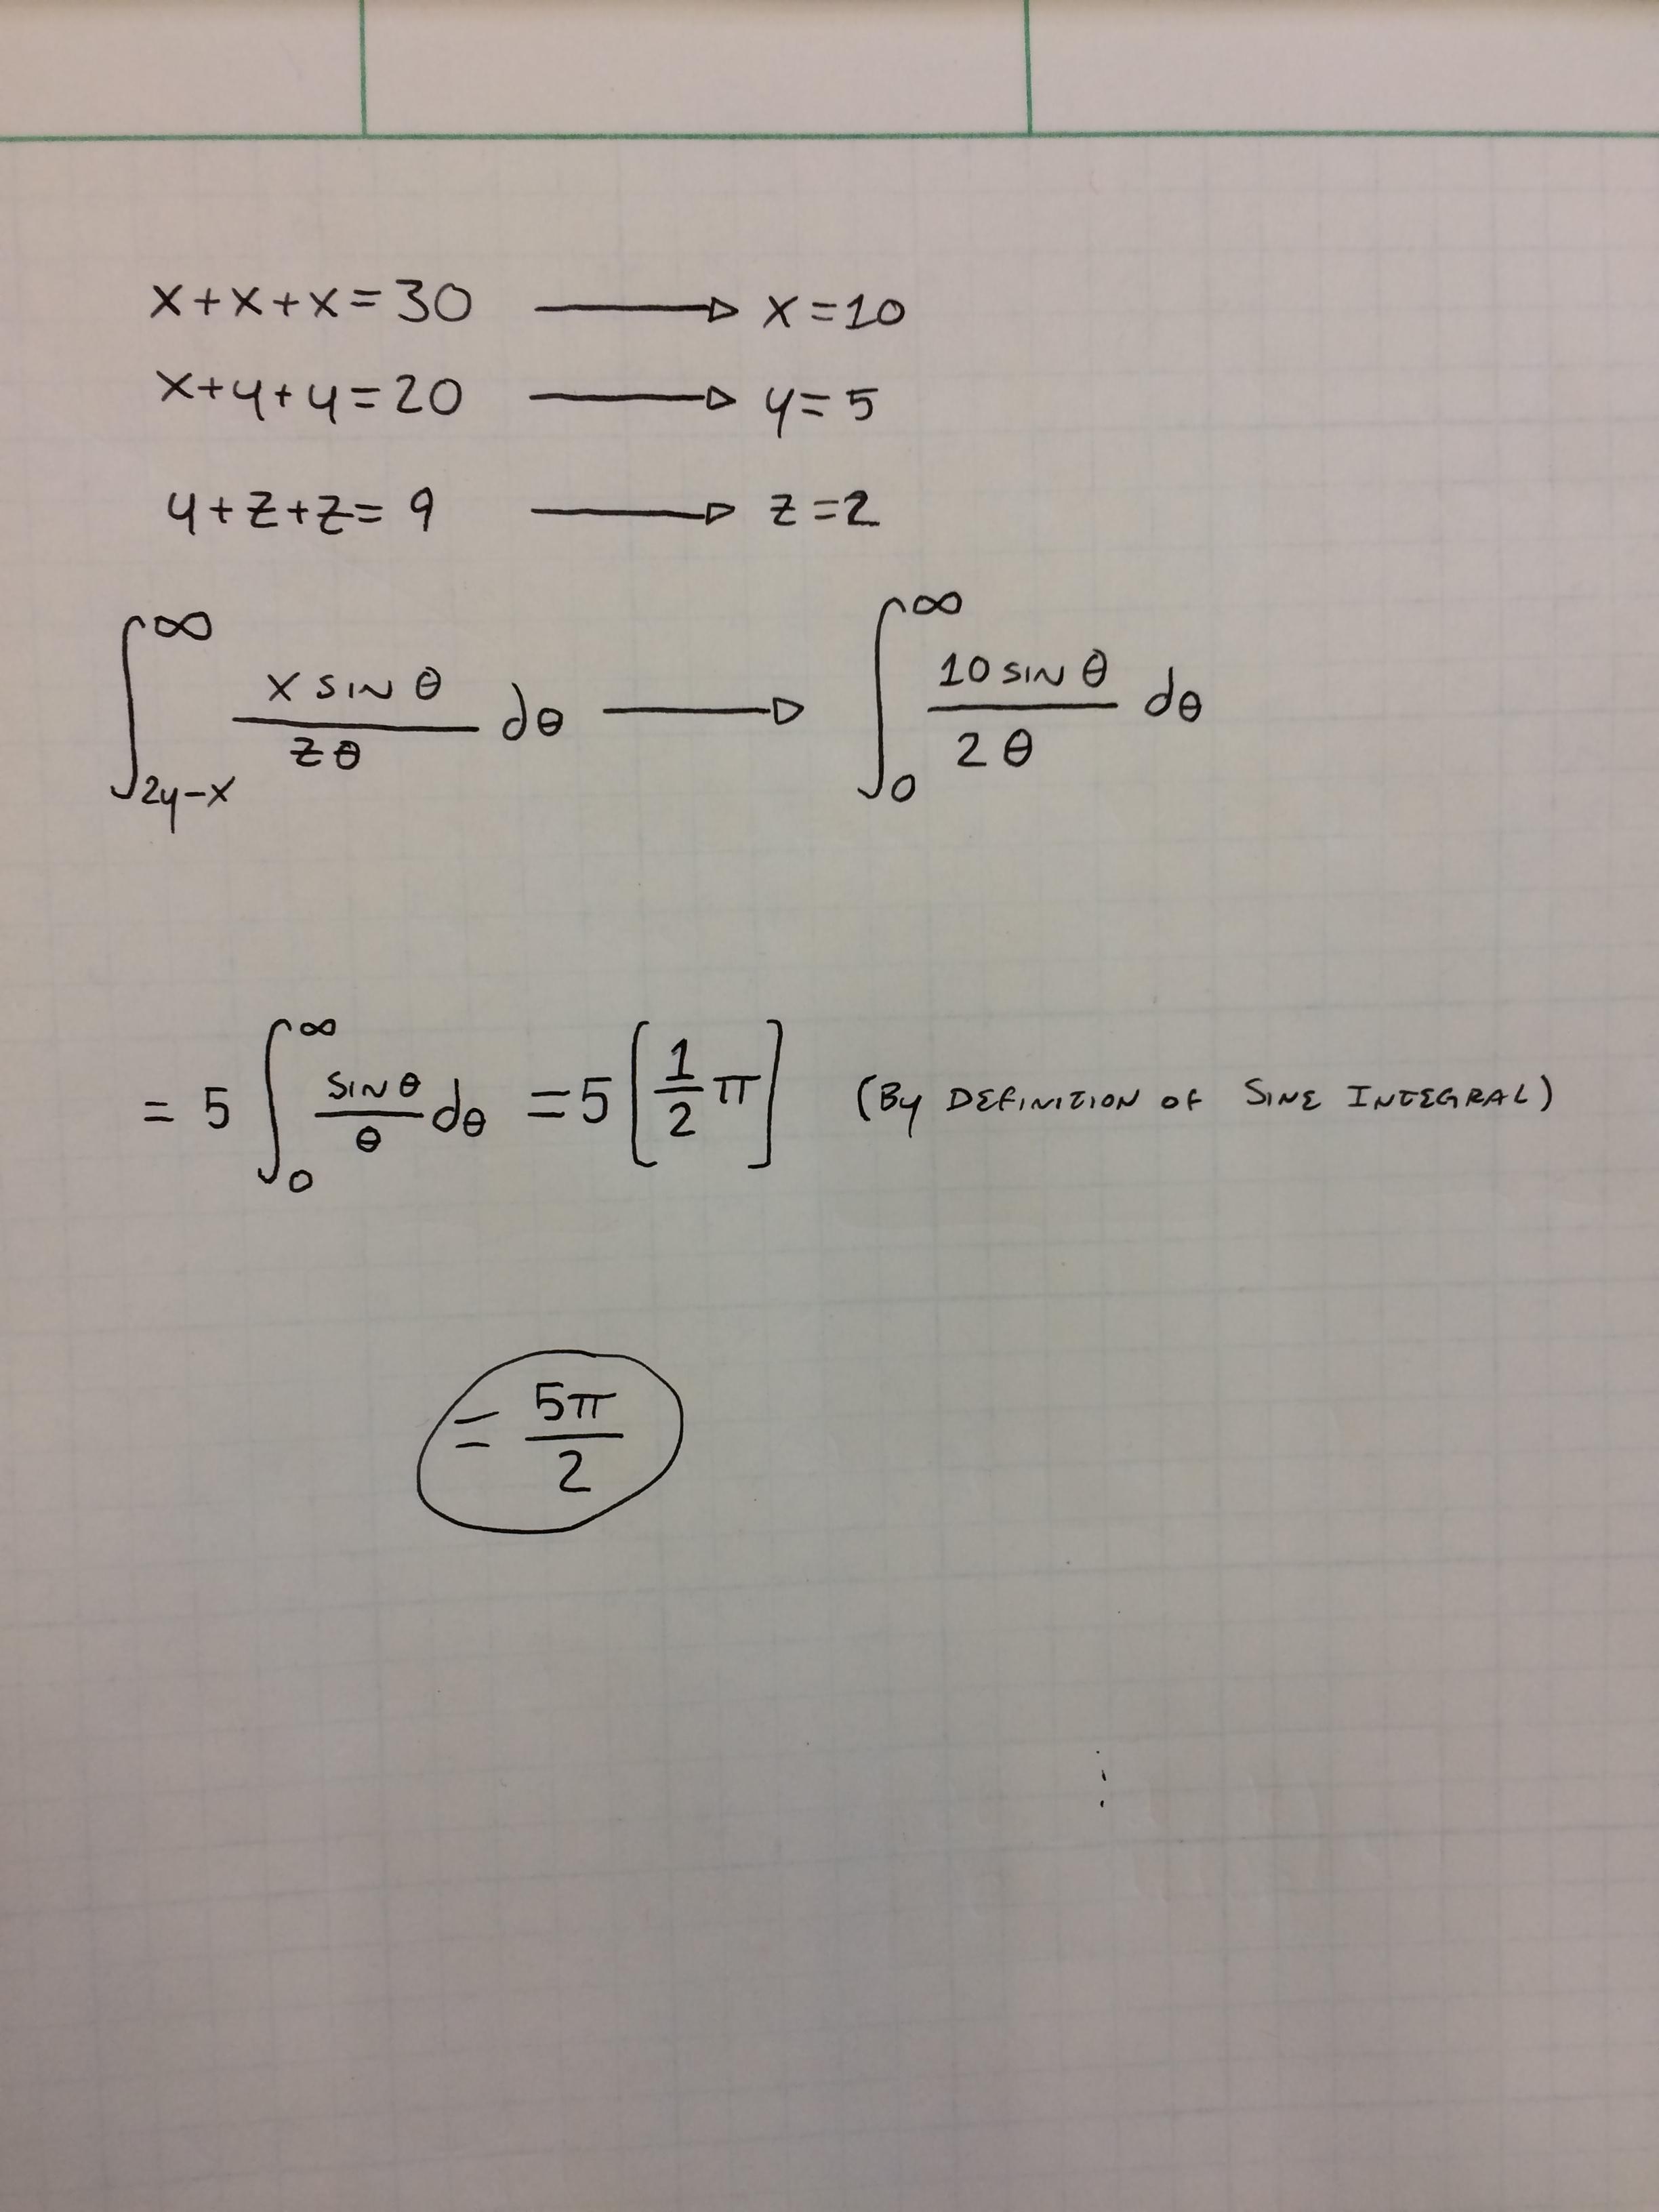 x+x+x=30 → x=10
x+y+y=20 → y=5
y+z+z=9 → z=2
∫_{2y-x}^{∞} (x sin θ)/(zθ) dθ → ∫_{0}^{∞} (10 sin θ)/(2θ) dθ
= 5 ∫_{0}^{∞} (sin θ)/θ dθ = 5 [1/2 π] (By DEFINITION OF SINE INTEGRAL)
= 5π/2